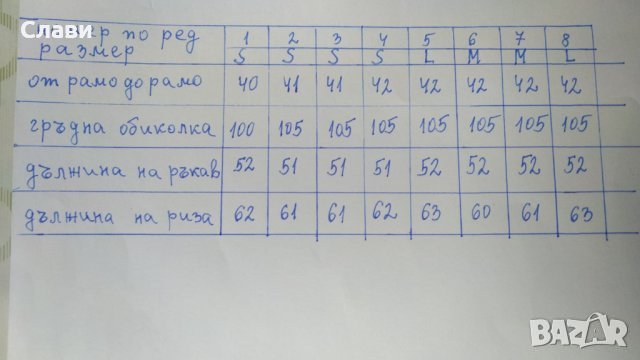 Слави
номер по ред 1 2 3 4 5 6 7 8
размер S S S S L M M L
от рамо до рамо 40 41 41 42 42 42 42 42
гръдна обиколка 100 105 105 105 105 105 105 105
дължина на ръкав 52 51 51 51 52 52 52 52
дължина на риза 62 61 61 62 63 60 61 63
BAZAR